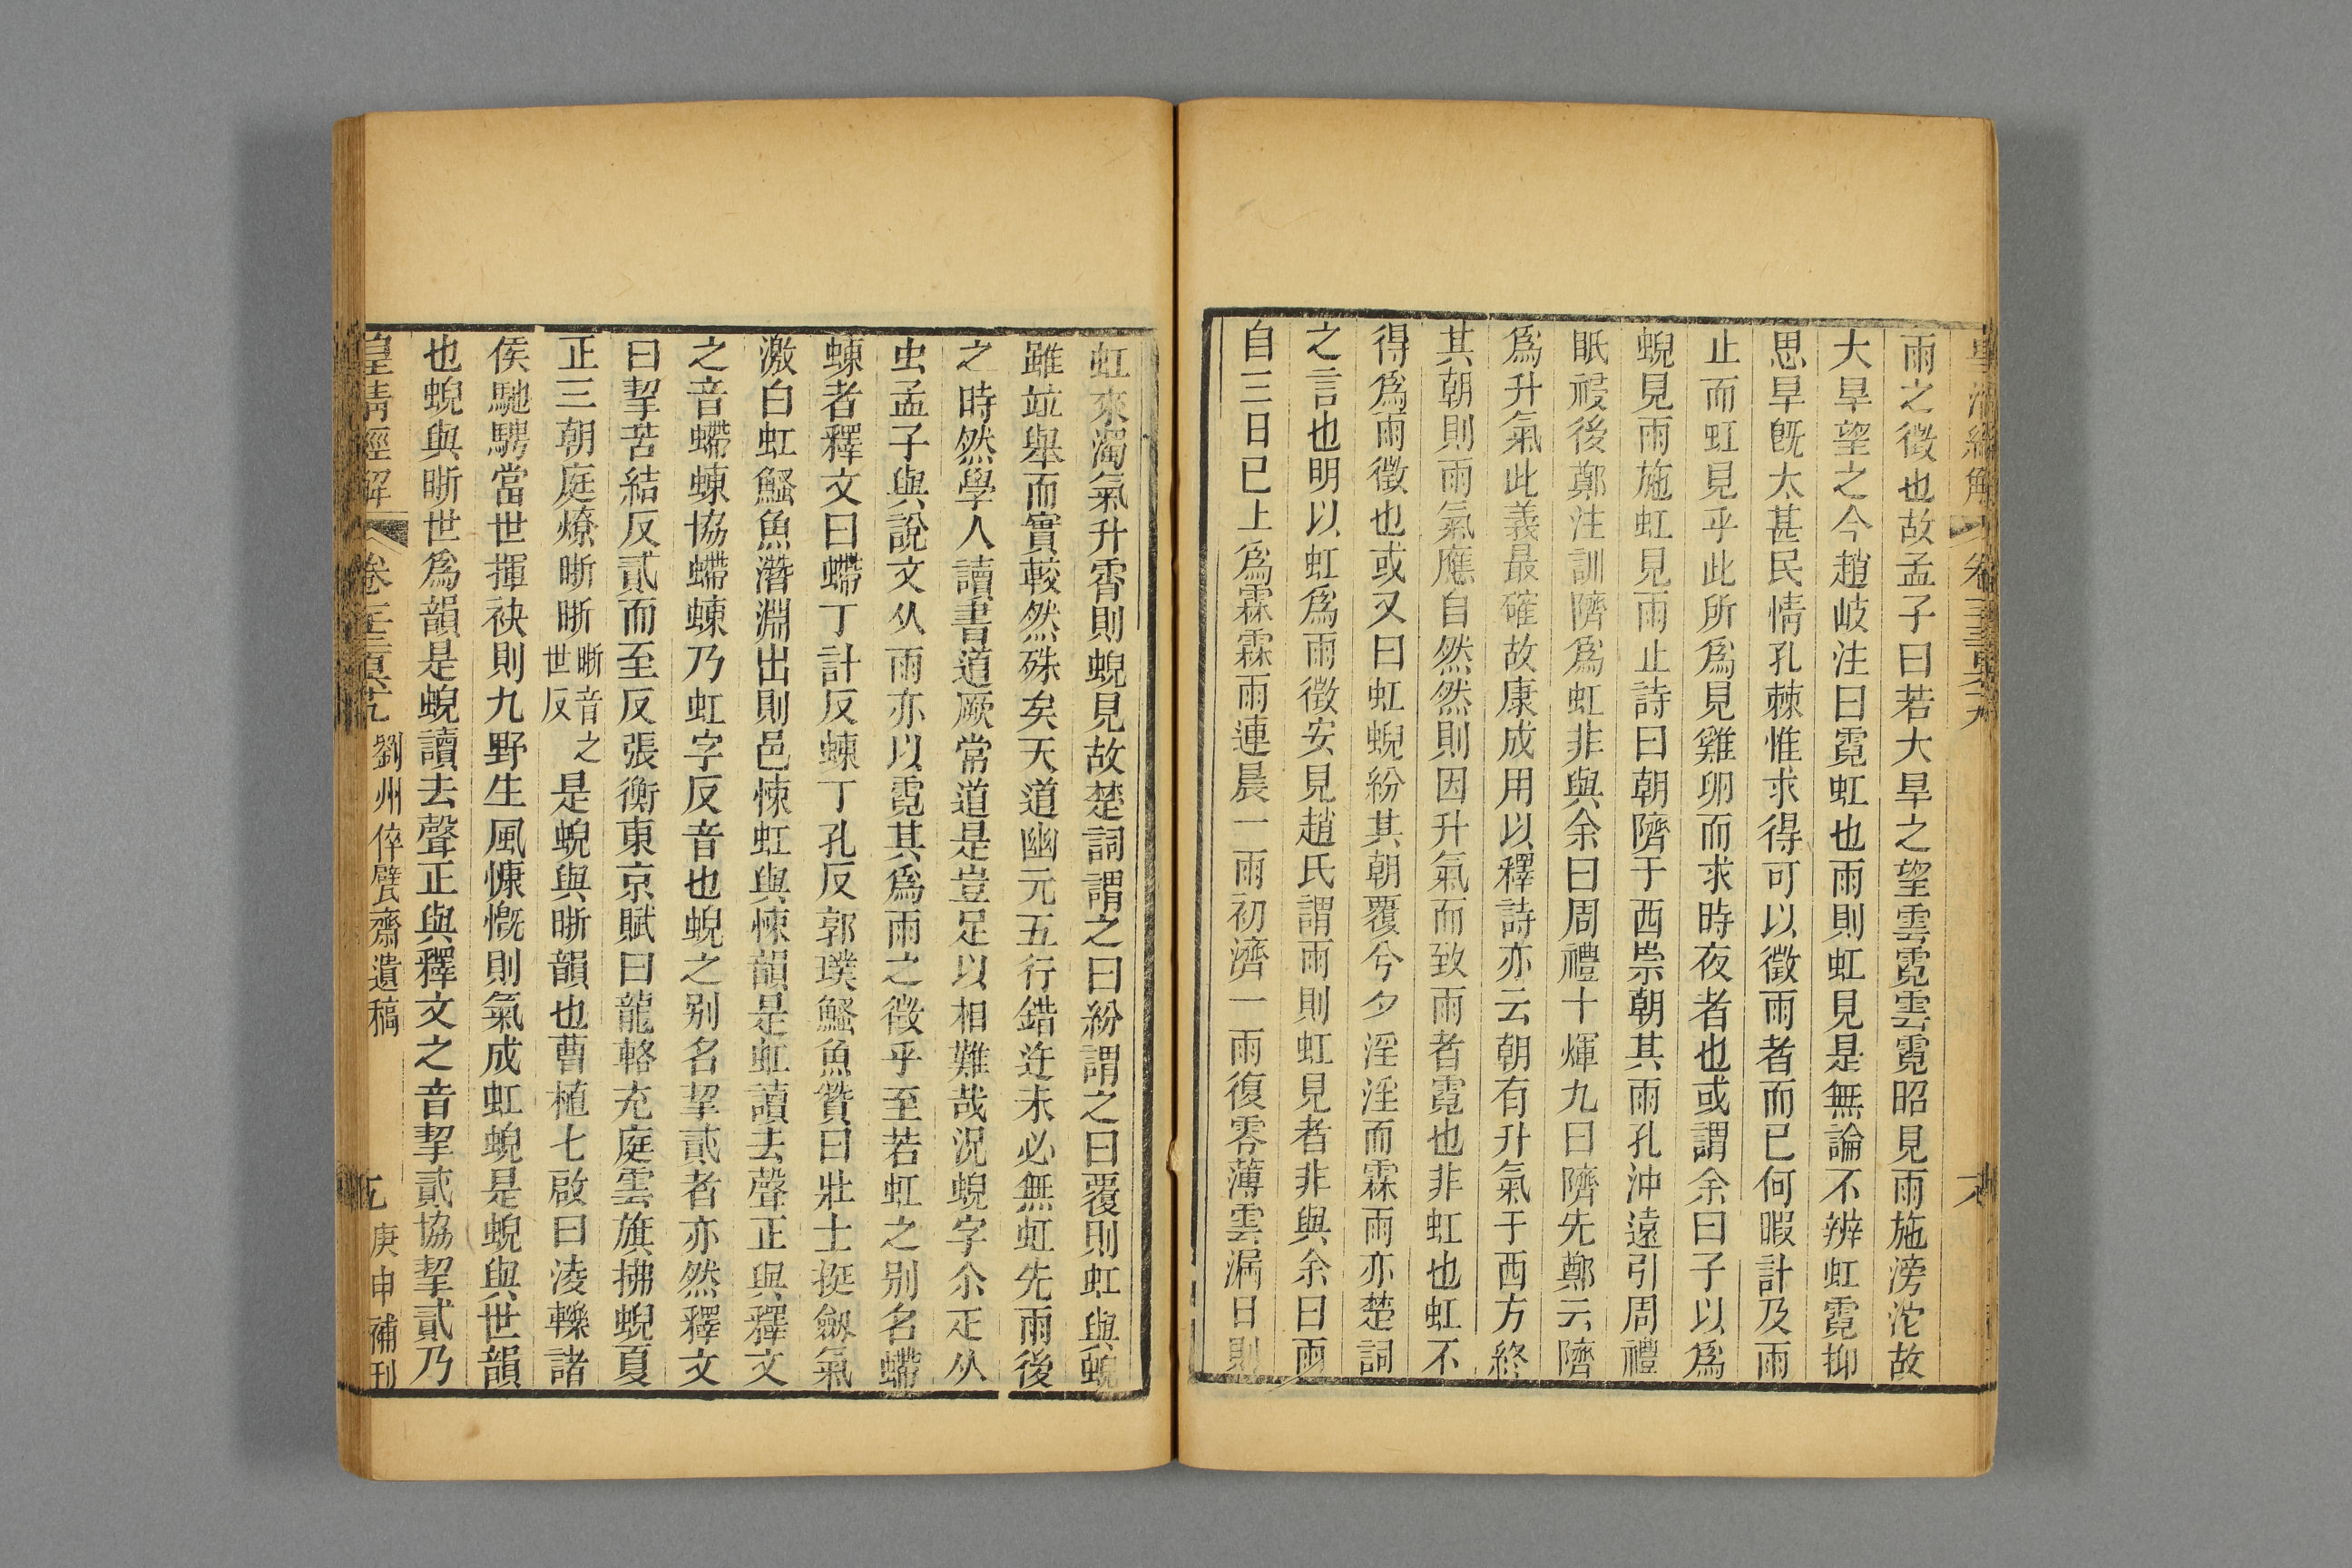 雨之徵也故孟子曰若大旱之望雲霓雲霓昭見雨施滂沱故
大旱望之今趙岐注曰霓虹也雨則虹見是無論不辨虹霓抑
思旱旣太甚民情孔棘惟求得可以徵雨者而已何暇計及雨
止而虹見乎此所爲見雞卵而求時夜者也或謂余曰子以爲
蜺見雨施虹見雨止詩曰朝隮于西崇朝其雨孔沖遠引周禮
眂祲後鄭注訓隮爲虹非與余曰周禮十煇九曰隮先鄭云隮
爲升氣此義最確故康成用以釋詩亦云朝有升氣于西方終
其朝則雨氣應自然然則因升氣而致雨者霓也非虹也虹不
得爲雨徵也或又曰虹蜺紛其朝覆兮夕淫淫而霖雨亦楚詞
之言也明以虹爲雨徵安見趙氏謂雨則虹見者非與余曰雨
自三日已上爲霖霖雨連晨一雨初濟一雨復零薄雲漏日則
虹來濁氣升霄則蜺見故楚詞謂之曰紛謂之曰覆則虹與蜺
雖竝舉而實較然殊矣天道幽元五行錯迕未必無虹先雨後
之時然學人讀書道厥常道是豈足以相難哉況蜺字尒疋从
虫孟子與說文从雨亦以霓其爲雨之徵乎至若虹之别名螮
蝀者釋文曰螮丁計反蝀丁孔反郭璞鰠魚贊曰壯士挺劔氣
激白虹鰠魚潛淵出則邑悚虹與悚韻是虹讀去聲正與釋文
之音螮蝀協螮蝀乃虹字反音也蜺之别名挈貳者亦然釋文
曰挈苦結反貳而至反張衡東京賦曰龍輅充庭雲旗拂蜺夏
正三朝庭燎晣晣晣音之世反是蜺與晣韻也曹植七啟曰淩轢諸
侯馳騁當世揮袂則九野生風慷慨則氣成虹蜺是蜺與世韻
也蜺與晣世爲韻是蜺讀去聲正與釋文之音挈貳協挈貳乃
皇清經解 卷 劉州倅甓齋遺稿 庚申補刊